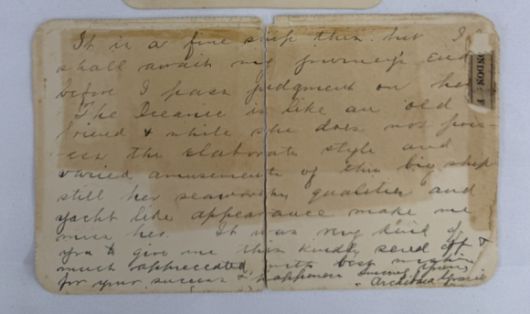 It is a fine ship this but I
shall await my journey's end
before I pass judgment on her
The Oceanic is like an old
friend & while she does not poss-
ess the elaborate style and
varied amusements of this big ship
still her seaworthy qualities and
yacht like appearance make me
miss her. It was very kind of
you to give me this kindly send off &
much appreciated with best wishes
for your success & happiness Sincerely Yours
Archibald Gracie
NDON